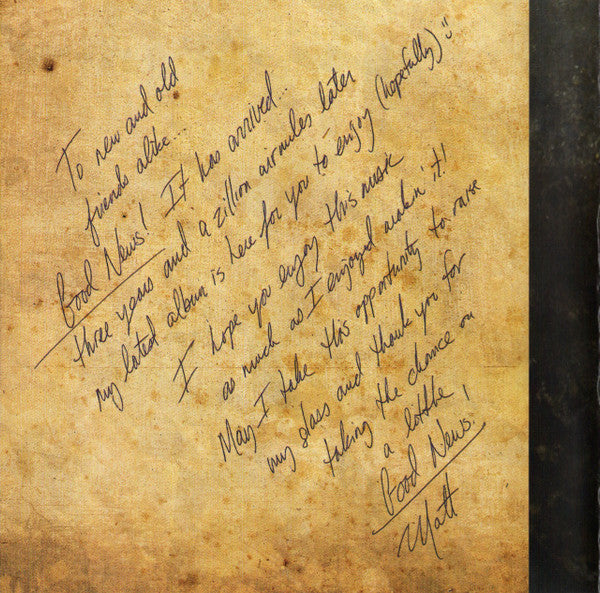 To new and old
friends alike...
Good News! It has arrived...
three years and a zillion airmiles later
my latest album is here for you to enjoy (hopefully) ":)
I hope you enjoy this music
as much as I enjoyed makin' it!
May I take this opportunity to raise
my glass and thank you for
taking the chance on
a little
Good News!
Matt